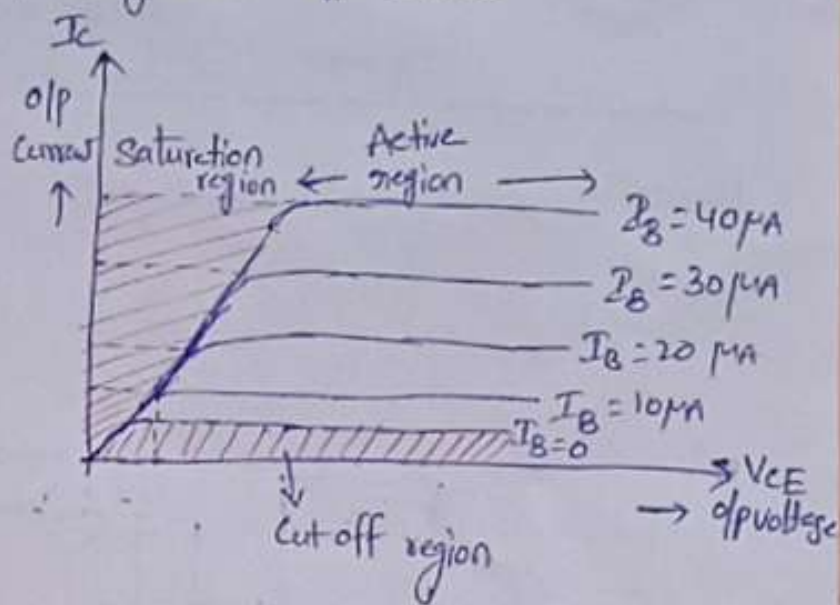 Ic
o/p
Current
↑
Saturction
region
← Active
region →
I_B = 40 μA
I_B = 30 μA
I_B = 20 μA
I_B = 10 μA
I_B = 0
V_CE
→ o/p voltage
Cut off region